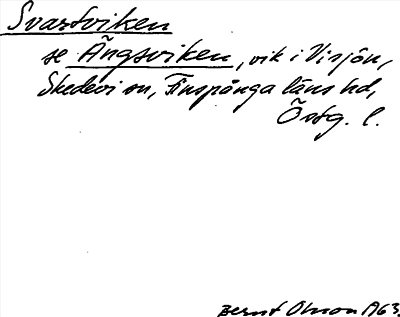 Svartviken
se Ängsviken, vik i Visjön,
Skedevi sn, Finspånga läns hd,
Östg. l.
Bernt Olsson 1963.